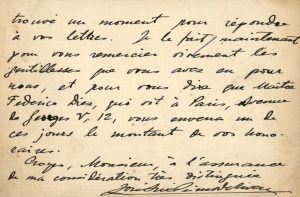 trouvé un moment pour répondre
à vos lettres. Je le fait maintenant
pour vous remercier vivement les
gentillesses que vous avez eu pour
nous, et pour vous dire que Maître
Federico Diez, qui vit à Paris, Avenue
de Georges V, 12, vous enverra un de
ces jours le montant de vos hono-
raires.
Croyez, Monsieur, à l'assurance
de ma considération très distinguée